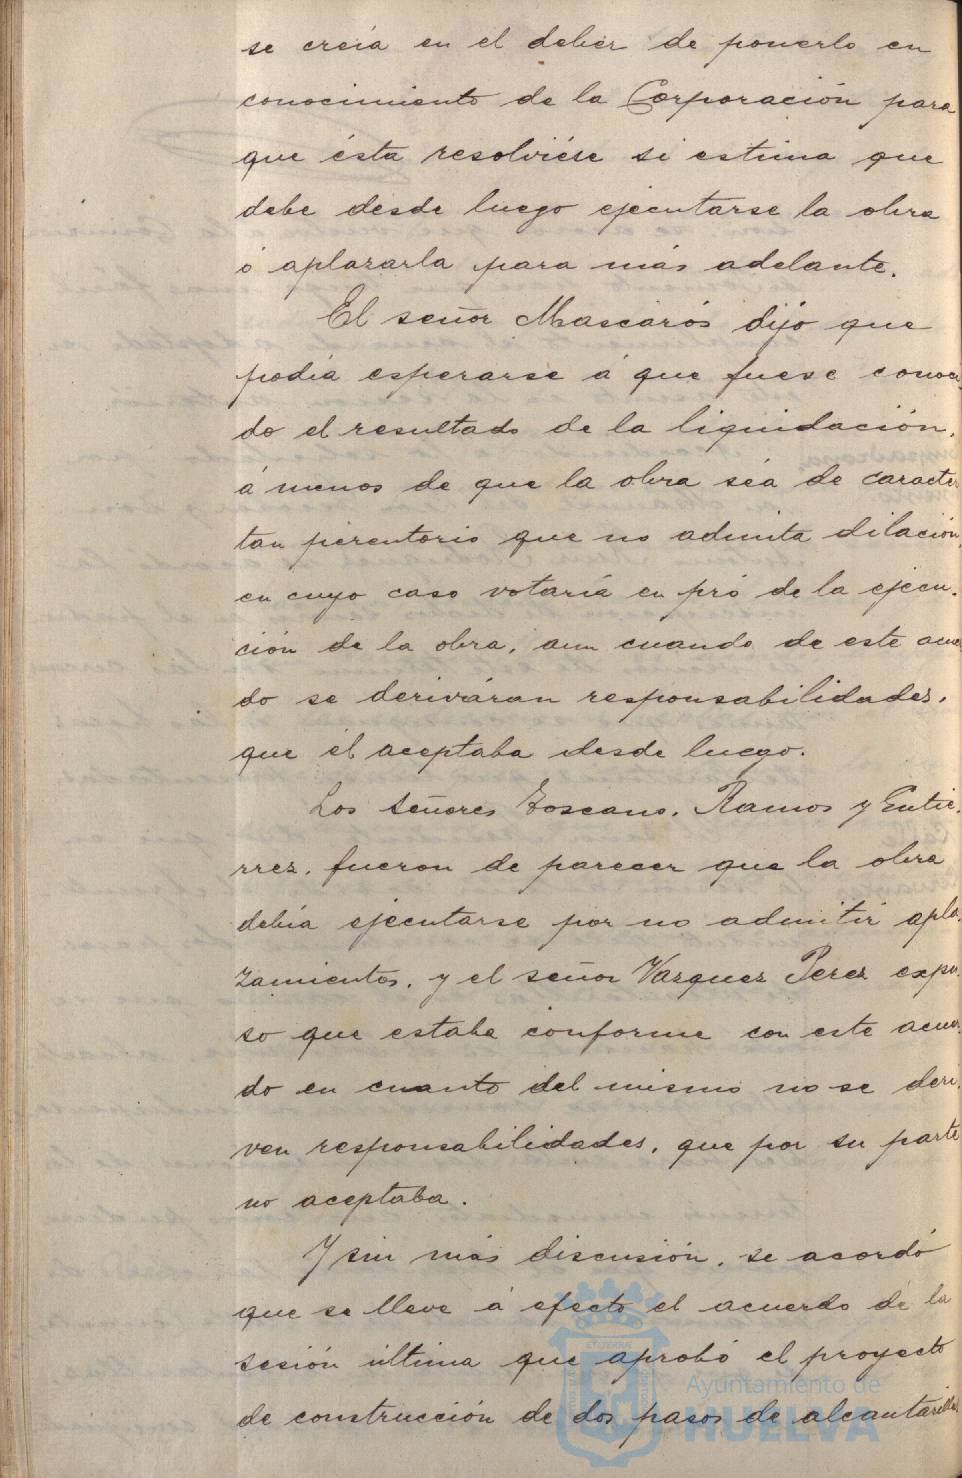 se creía en el deber de ponerlo en
conocimiento de la Corporación para
que ésta resolviése si estima que
debe desde luego ejecutarse la obra
ó aplazarla para más adelante.
El señor Mascarós dijo que
podía esperarse á que fuese conoci-
do el resultado de la liquidación,
á menos de que la obra séa de caracter
tan perentorio que no admita dilación,
en cuyo caso votaría en pró de la ejecu-
ción de la obra, aun cuando de este acuer
do se deriváran responsabilidades,
que él aceptaba desde luego.
Los señores Toscano, Ramos y Gutie-
rrez, fueron de parecer que la obra
debía ejecutarse por no admitir apla-
zamientos, y el señor Vazquez Perez expu-
so que estaba conforme con este acuer-
do en cuanto del mismo no se deri-
ven responsabilidades, que por su parte
no aceptaba.
Y sin más discusión, se acordó
que se lleve á efecto el acuerdo de la
sesión última que aprobó el proyecto
de construcción de dos pasos de alcantarillas
Ayuntamiento de
HUELVA